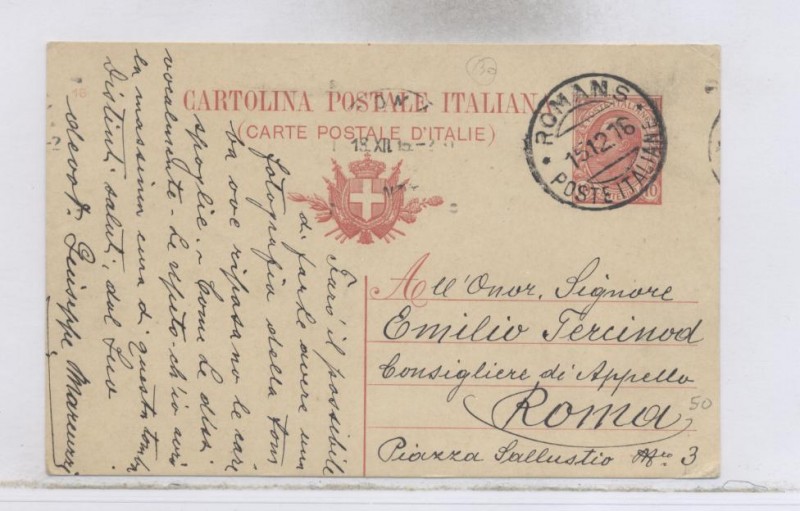 CARTOLINA POSTALE ITALIANA
(CARTE POSTALE D'ITALIE)
ROMANS
15.12.16
POSTE ITALIANE
10
16
30
All'Onor. Signore
Emilio Tercinod
Consigliere di Appello
Roma
50
Piazza Sallustio Nro 3
Farò il possibile
di farLe avere una
fotografia della tom
ba ove riposano le care
spoglie. Come Le dissi
vocalmente Le ripeto ch'io avrò
la massima cura di questa tomba
Distinti saluti dal Suo
devot. Giuseppe Marcuzzi